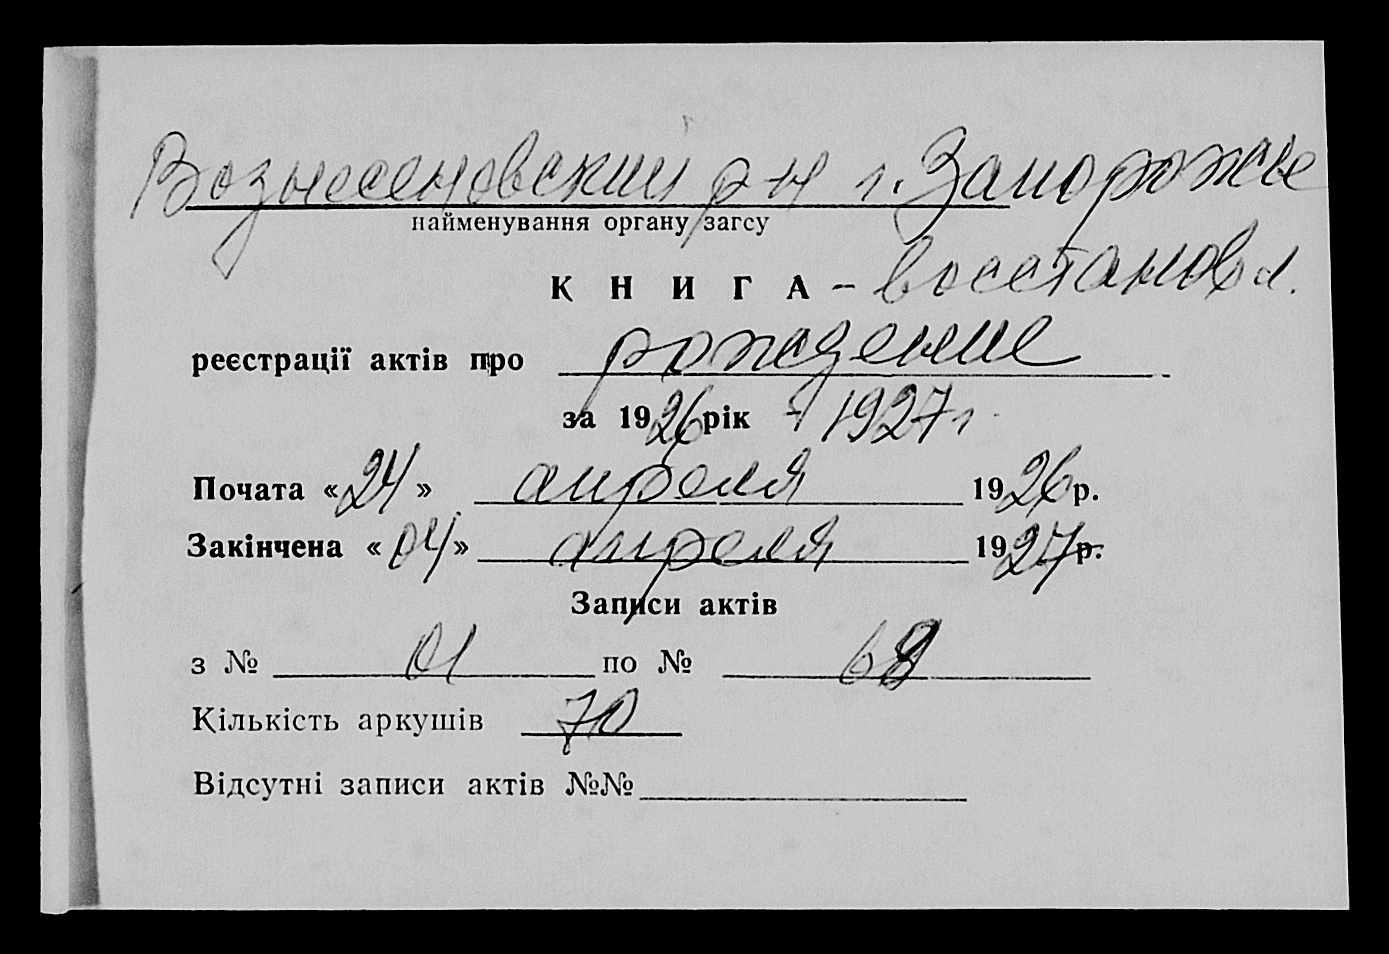 Вознесеновский р-н г. Запорожье
найменування органу загсу
КНИГА - восстановл.
реєстрації актів про рождение
за 1926 рік - 1927 г
Почата «24» апреля 1926 р.
Закінчена «04» апреля 1927 р.
Записи актів
з № 01 по № 68
Кількість аркушів 70
Відсутні записи актів №№